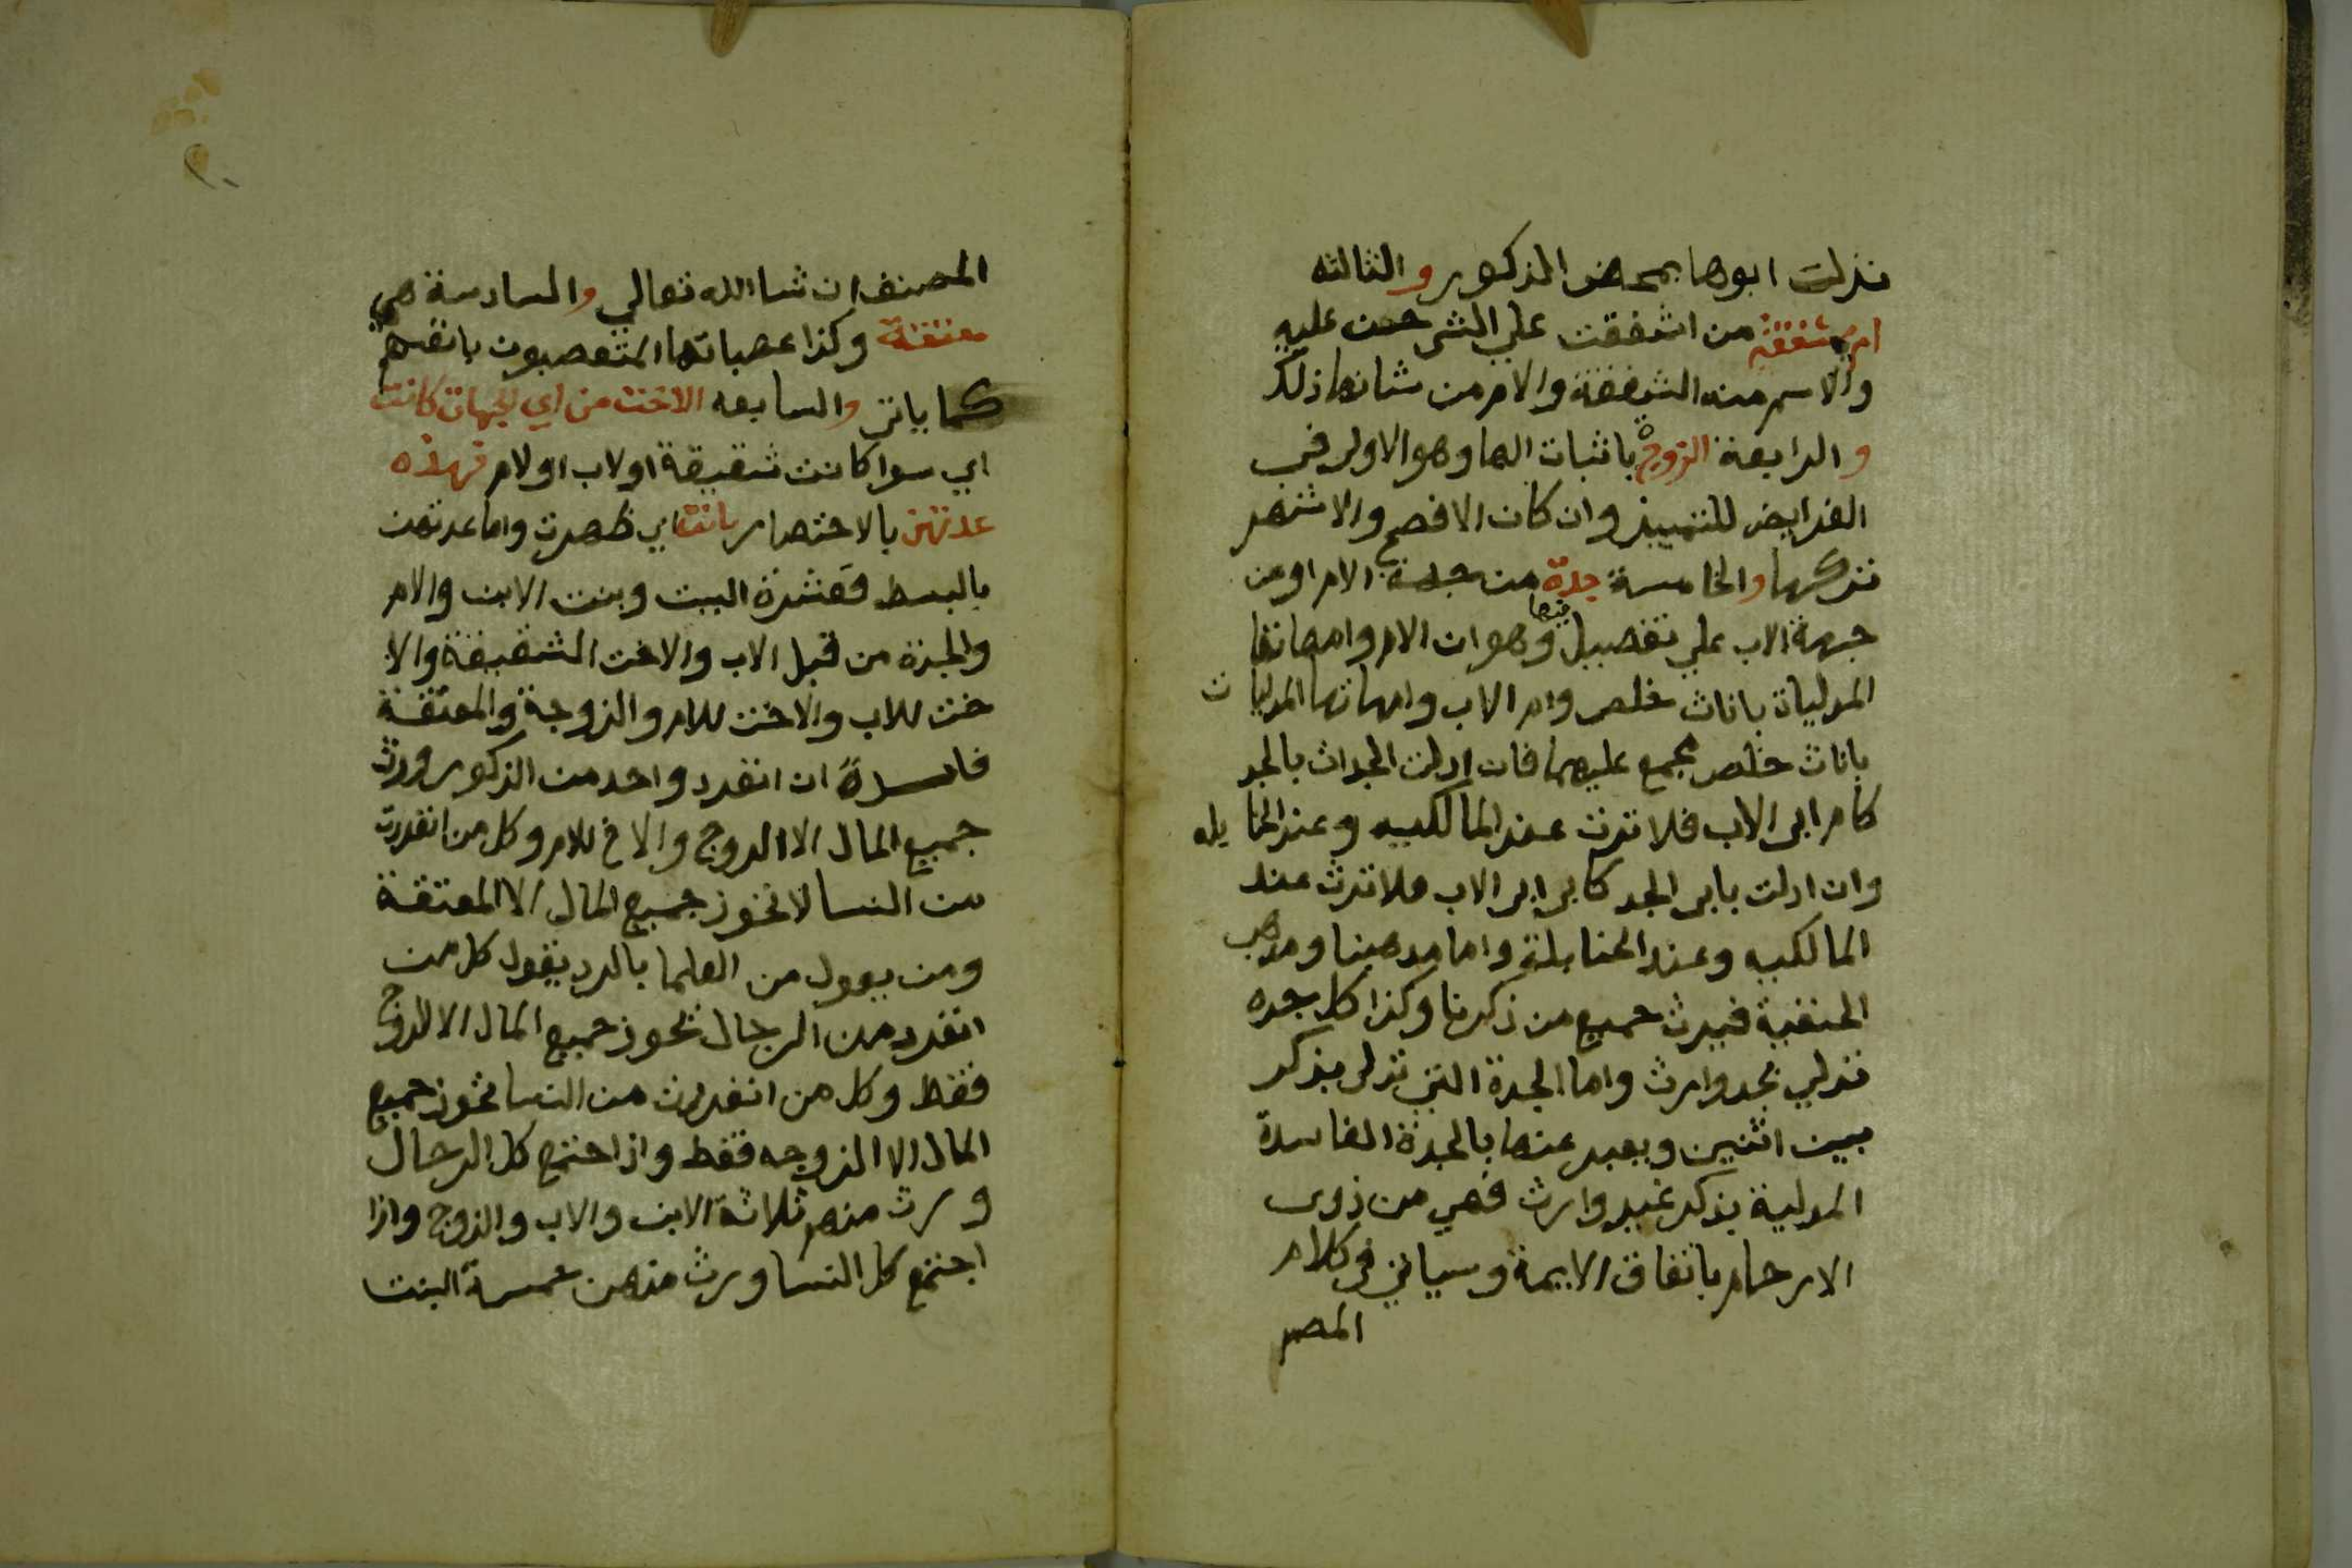 نزلت ابوها بمحض الذكور والثالثه
ام مشفقة من اشفقت علي الشي حنت عليه
والاسم منه الشفقة والام من شانها ذلك
والرابعة الزوجة باثبات الها وهو الاولى في
الفرايض للتمييز وان كان الافصح والاشهر
تركها والخامسة جدة من جهة الام او من
جهة الاب علي تفصيل فيها وهو ان الام وامهاتها
المدليات باناث خلص وام الاب وامهاتها المدليات
باناث خلص مجمع عليهما فان ادلت الجدات بالجد
كام ابي الاب فلا ترث عند المالكيه وعند الحنابله
وان ادلت بابي الجد كابي ابي الاب فلا ترث عند
المالكيه وعند الحنابلة واما مذهبنا ومذهب
الحنفية فيرث جميع من ذكرنا وكذا كل جده
تدلي بجد وارث واما الجدة التي تدلى بذكر
بين انثيين ويعبر عنها بالجدة الفاسدة
المدلية بذكر غير وارث فهي من ذوى
الارحام باتفاق الايمة وسياتي في كلام
المصم
٢٠
المصنف ان شا الله تعالي والسادسة هي
معتقة وكذا عصباتها المتعصبون بانفسهم
كما ياتي والسابعه الاخت من اي الجهات كانت
اي سوا كانت شقيقة او لاب او لام فهذه
عدتهن بالاختصار بانت اي ظهرت واما عدتهن
بالبسط فعشرة البنت وبنت الابن والام
والجدة من قبل الاب والاخت الشقيقة والا
خت للاب والاخت للام والزوجة والمعتقة
فايسدة ان انفرد واحد من الذكور ورث
جميع المال الا الزوج والاخ للام وكل من انفردت
من النسا لا تحوز جميع المال الا المعتقة
ومن يقول من العلما بالرد يقول كل من
انفرد من الرجال يحوز جميع المال الا الزوج
فقط وكل من انفردت من النسا تحوز جميع
المال الا الزوجه فقط واذا اجتمع كل الرجال
ورث منهم ثلاثة الابن والاب والزوج واذا
اجتمع كل النسا ورث منهن خمسة البنت